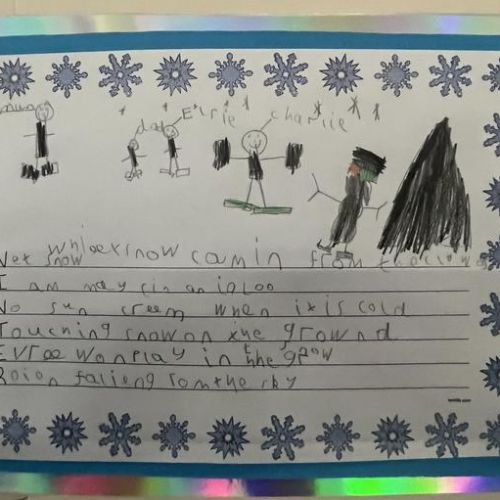 dad Elrie charlie
Wet white snow camin from the clows
I am mayciin an igloo
No sun creem when it is cold
Touching snow on the grownd
EVree wonplay in the snow
Roion falieng romthe sky